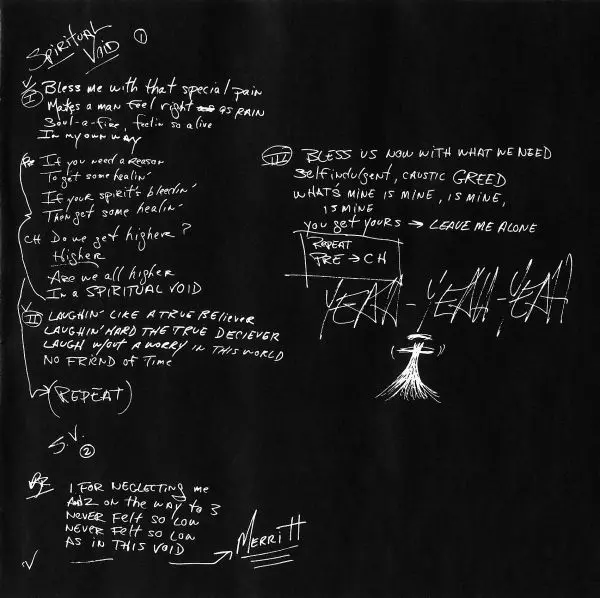 SPIRITUAL VOID ①
V I Bless me with that special pain
Makes a man feel right as RAIN
Soul-a-fire, feelin so alive
In my own way
PRE If you need a reason
To get some healin'
If your spirit's bleedin'
Then get some healin'
CH Do we get higher?
Higher
Are we all higher
In a SPIRITUAL VOID
V II LAUGHIN' LIKE A TRUE BELIEVER
LAUGHIN' HARD THE TRUE DECIEVER
LAUGH w/out A WORRY IN THIS WORLD
NO FRIEND OF TIME
(REPEAT)
S.V. ②
BZ 1 FOR NEGLECTING me
2 on the way to 3
NEVER FELT SO LOW
NEVER FELT SO LOW
AS IN THIS VOID
MERRITT
III BLESS US NOW WITH WHAT WE NEED
Self indulgent, CAUSTIC GREED
WHAT'S MINE IS MINE, IS MINE,
IS MINE
you get yours → LEAVE ME ALONE
REPEAT
PRE → CH
YEAH - YEAH - YEAH